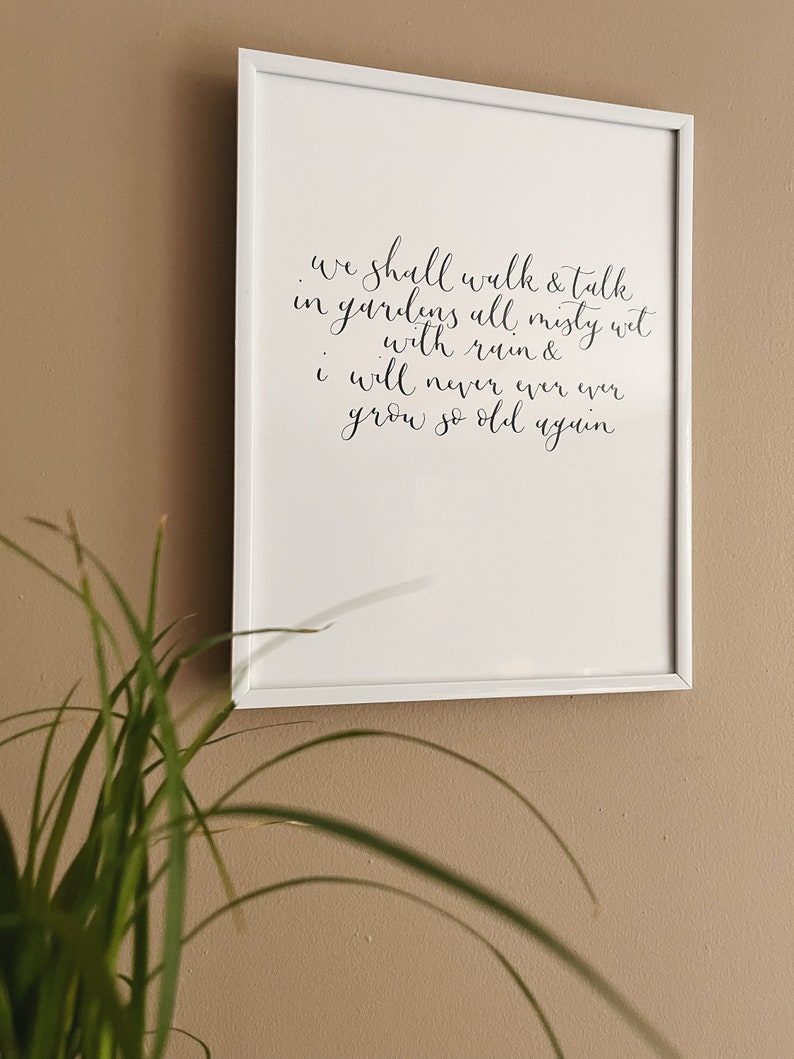 we shall walk & talk
in gardens all misty wet
with rain &
i will never ever ever
grow so old again